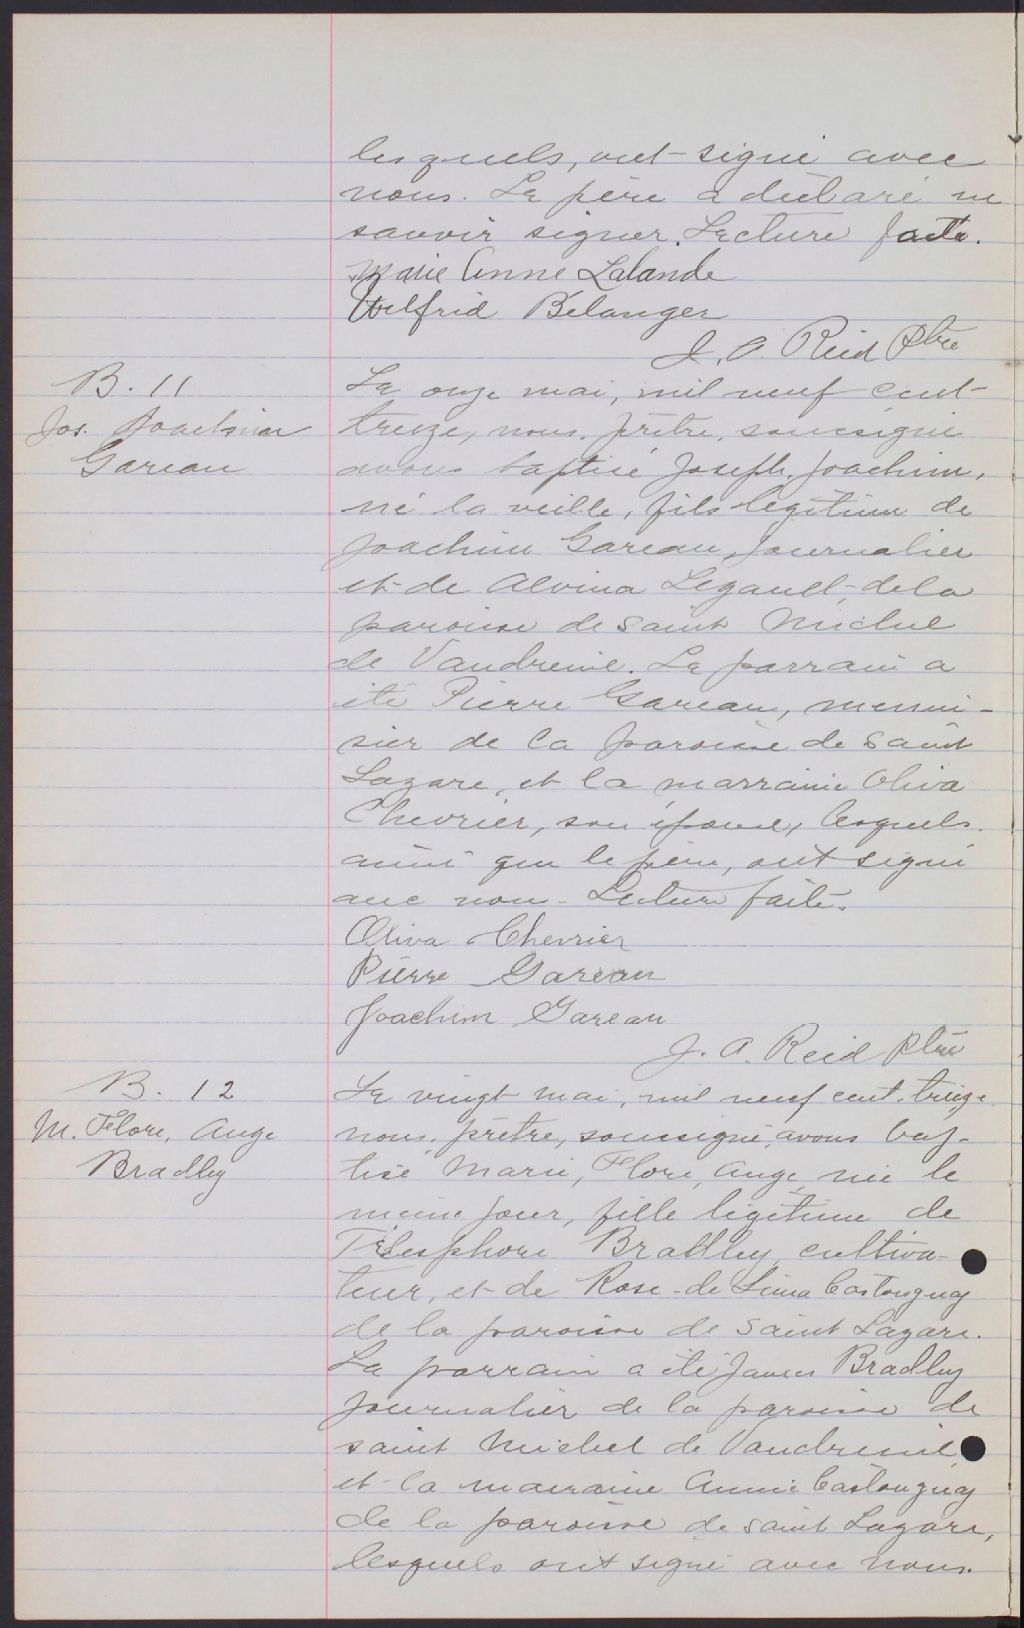 lesquels, ont signé avec
nous. Le père a déclaré ne
savoir signer. Lecture faite.
Marie Anne Lalande
Wilfrid Belanger
J. A. Reid Ptre
B. 11
Jos. Joachim
Gareau
Le onze mai, mil neuf cent
treize, nous, prêtre, soussigné
avons baptisé Joseph, Joachim,
né la veille, fils légitime de
Joachim Gareau, journalier
et de Alvina Legault, de la
paroisse de Saint Michel
de Vaudreuil. Le parrain a
été Pierre Gareau, menui-
sier de la paroisse de Saint
Lazare, et la marraine Oliva
Chevrier, son épouse, lesquels
ainsi que le père, ont signé
avec nous. Lecture faite.
Oliva Chevrier
Pierre Gareau
Joachim Gareau
J. A. Reid Ptre
B. 12
M. Flore, Ange
Bradley
Le vingt mai, mil neuf cent treize
nous, prêtre, soussigné, avons bap-
tisé Marie, Flore, Ange, née le
même jour, fille légitime de
Télesphore Bradley, cultiva-
teur, et de Rose-de Lima Castonguay
de la paroisse de Saint Lazare.
Le parrain a été James Bradley
journalier de la paroisse de
saint Michel de Vaudreuil
et la marraine Annie Castonguay
de la paroisse de saint Lazare,
lesquels ont signé avec nous.